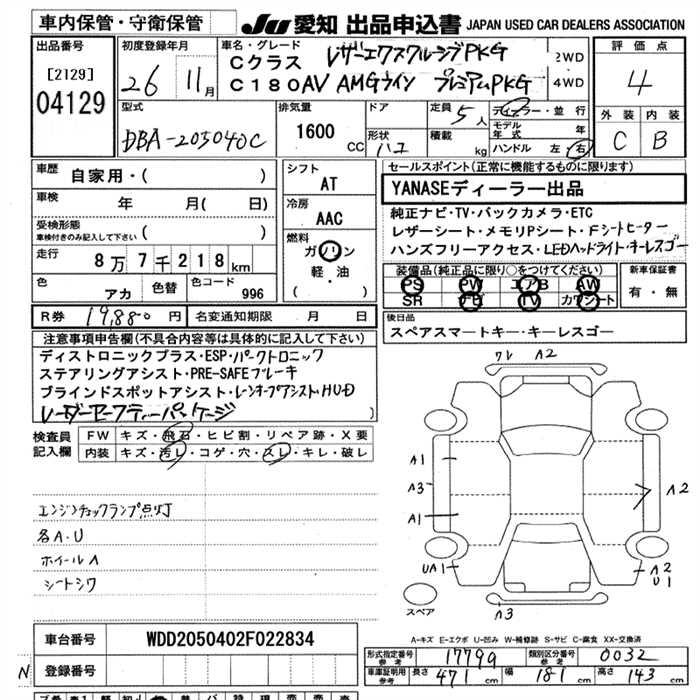 車内保管・守衛保管
JU 愛知 出品申込書 JAPAN USED CAR DEALERS ASSOCIATION
出品番号
[2129]
04129
初度登録年月
26 11月
車名・グレード
Cクラス レザーエクスクルーシブPKG
C180AV AMGライン プレミアムPKG
2WD
4WD
評価点
4
外装 内装
C B
型式
DBA-205040C
排気量
1600 CC
ドア
形状
ハコ
定員 5人
積載 kg
ディーラー・並行
モデル年式 年
ハンドル 左・右
車歴
自家用・( )
車検 年 月( 日)
受検形態
車検付きのみ記入して下さい ( )
走行 8万7千218km
色 アカ
色替
色コード 996
シフト
AT
冷房
AAC
燃料
ガソリン
軽・油
( )
セールスポイント(正常に機能するものに限ります)
YANASEディーラー出品
純正ナビ・TV・バックカメラ・ETC
レザーシート・メモリPシート・Fシートヒーター
ハンズフリーアクセス・LEDヘッドライト・キーレスゴー
装備品(純正品に限り○をつけてください)
PS PW エアB AW
SR ナビ TV カワシート
新車保証書
有・無
R券 19,880 円
名変通知期限 月 日
後日品
スペアスマートキー・キーレスゴー
注意事項申告欄(不具合内容等は具体的に記入して下さい)
ディストロニックプラス・ESP・パークトロニック
ステアリングアシスト・PRE-SAFEブレーキ
ブラインドスポットアシスト・レーンキープアシスト・HUD
レーダーセーフティーパッケージ )
検査員記入欄
FW キズ・飛石・ヒビ割・リペア跡・X要
内装 キズ・汚レ・コゲ・穴・スレ・キレ・破レ
エンジンチェックランプ点灯
各A・U
ホイールA
シートシワ
ワレ A2
A1
A3
A1
A2
UA1
A2
U1
A3
スペア
A-キズ E-エクボ U-凹み W-補修跡 S-サビ C-腐食 XX-交換済
車台番号 WDD2050402F022834
N 登録番号
形式指定番号 参考 17799
類別区分番号 参考 0032
車庫証明用 参考 長さ 471 cm 幅 181 cm 高さ 143 cm